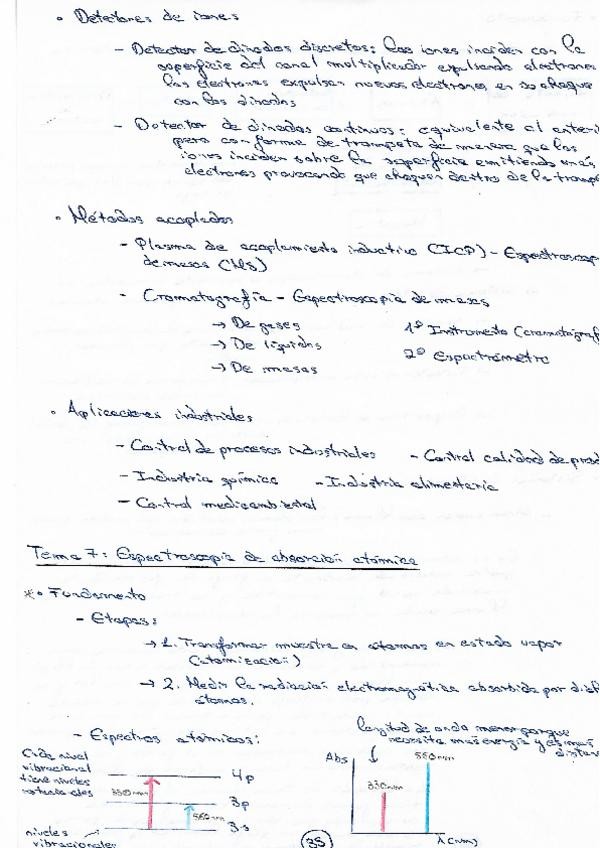 • Detectores de iones
- Detector de dinodos discretos: los iones inciden con la
superficie del canal multiplicador expulsando electrones
los electrones expulsan nuevos electrones en su choque
con los dinodos
- Detector de dinodos continuos: equivalente al anteri
pero con forma de trompeta de manera que los
iones inciden sobre la superficie emitiendo más
electrones provocando que choquen dentro de la tromp
• Métodos acoplados
- Plasma de acoplamiento inductivo (ICP) - Espectroscop
de masas (MS)
- Cromatografía - Espectroscopia de masas
→ De gases
1º Instrumento (cromatógraf
→ De líquidos
2º Espectrómetro
→ De masas
• Aplicaciones industriales
- Control de procesos industriales - Control calidad de prod
- Industria química - Industria alimentaria
- Control medioambiental
Tema 7: Espectroscopia de absorción atómica
* • Fundamento
- Etapas:
→ 1. Transformar muestra en átomos en estado vapor
(atomización)
→ 2. Medir la radiación electromagnética absorbida por
átomos.
- Espectros atómicos:
longitud de onda menor porque
necesita más energía y es más
Cada nivel
vibracional
tiene niveles
rotacionales
330nm
4p
3p
560nm
3s
niveles
vibracionales
Abs
330nm
560nm
λ(nm)
35